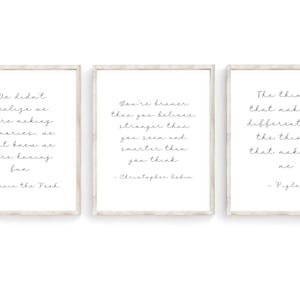 We didn't
alize we
re making
mories, we
st knew we
re having
fun
nnie the Pooh
You're braver
than you believe
stronger than
you seem and
smarter than
you think
- Christopher Robin
The thin
that mak
different
the thin
that mak
me
- Pigle